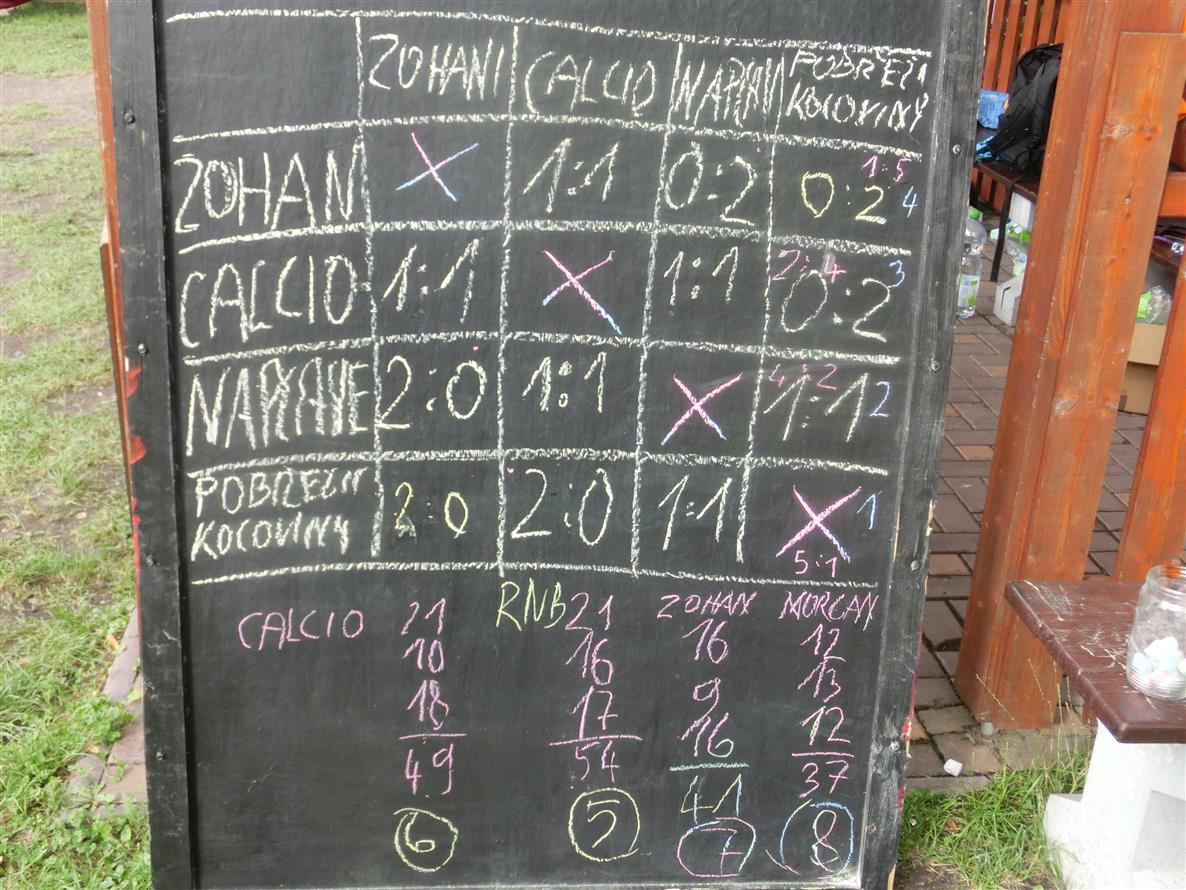 ZOHANI CALCIO NAPLAV POBŘEŽN
KOCOVINY
1:5
ZOHAN X 1:1 0:2 0:2 4
2:4
CALCIO 1:1 X 1:1 0:2 3
4:2
NAPLAVE 2:0 1:1 X 1:1 2
POBŘEŽN
KOCOVINY 2:0 2:0 1:1 X 1
5:1
CALCIO 21 RNB 21 ZOHAN 16 MORGAN 12
10 16 9 13
18 17 16 12
49 54 41 37
6 5 7 8